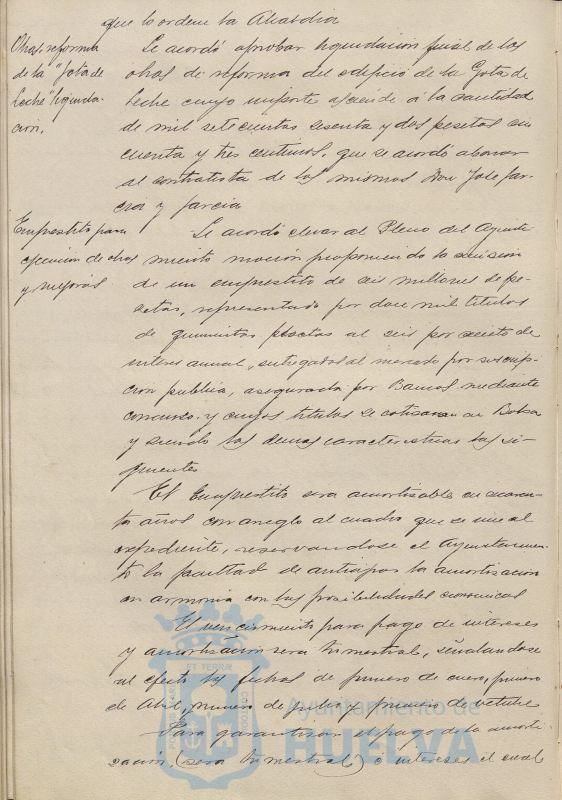 que lo ordene la Alcaldia
Obras reforma
de la "Gota de
Leche" liquida-
ción.
Se acordó aprobar liquidacion final de las
obras de reforma del edificio de la Gota de
Leche cuyo importe asciende á la cantidad
de mil setecientas sesenta y dos pesetas cin
cuenta y tres centimos, que se acordó abonar
al contratista de las mismas Don José Gar-
cia y Garcia
Emprestito para
ejecucion de obras
y mejoras.
Se acordó elevar al Pleno del Ayunta
miento moción proponiendo la emision
de un emprestito de seis millones de pe-
setas, representado por doce mil titulos
de quinientas pesetas al seis por ciento de
interes anual, entregados al mercado por suscrip-
cion publica, asegurada por Bancos mediante
concurso y cuyos titulos se cotizaran en Bolsa
y siendo las demas caracteristicas las si-
guientes
El Emprestito sera amortizable en cuaren-
ta años con arreglo al cuadro que se une al
expediente, reservandose el Ayuntamien-
to la facultad de anticipar la amortizacion
en armonia con las posibilidades economicas
El vencimiento para pago de intereses
y amortizacion sera trimestral, señalandose
al efecto las fechas de primero de enero, primero
de Abril, primero de Julio y primero de octubre
Para garantizar el pago de la amorti-
zacion, (sera trimestral) e intereses el cual
Ayuntamiento de
HUELVA